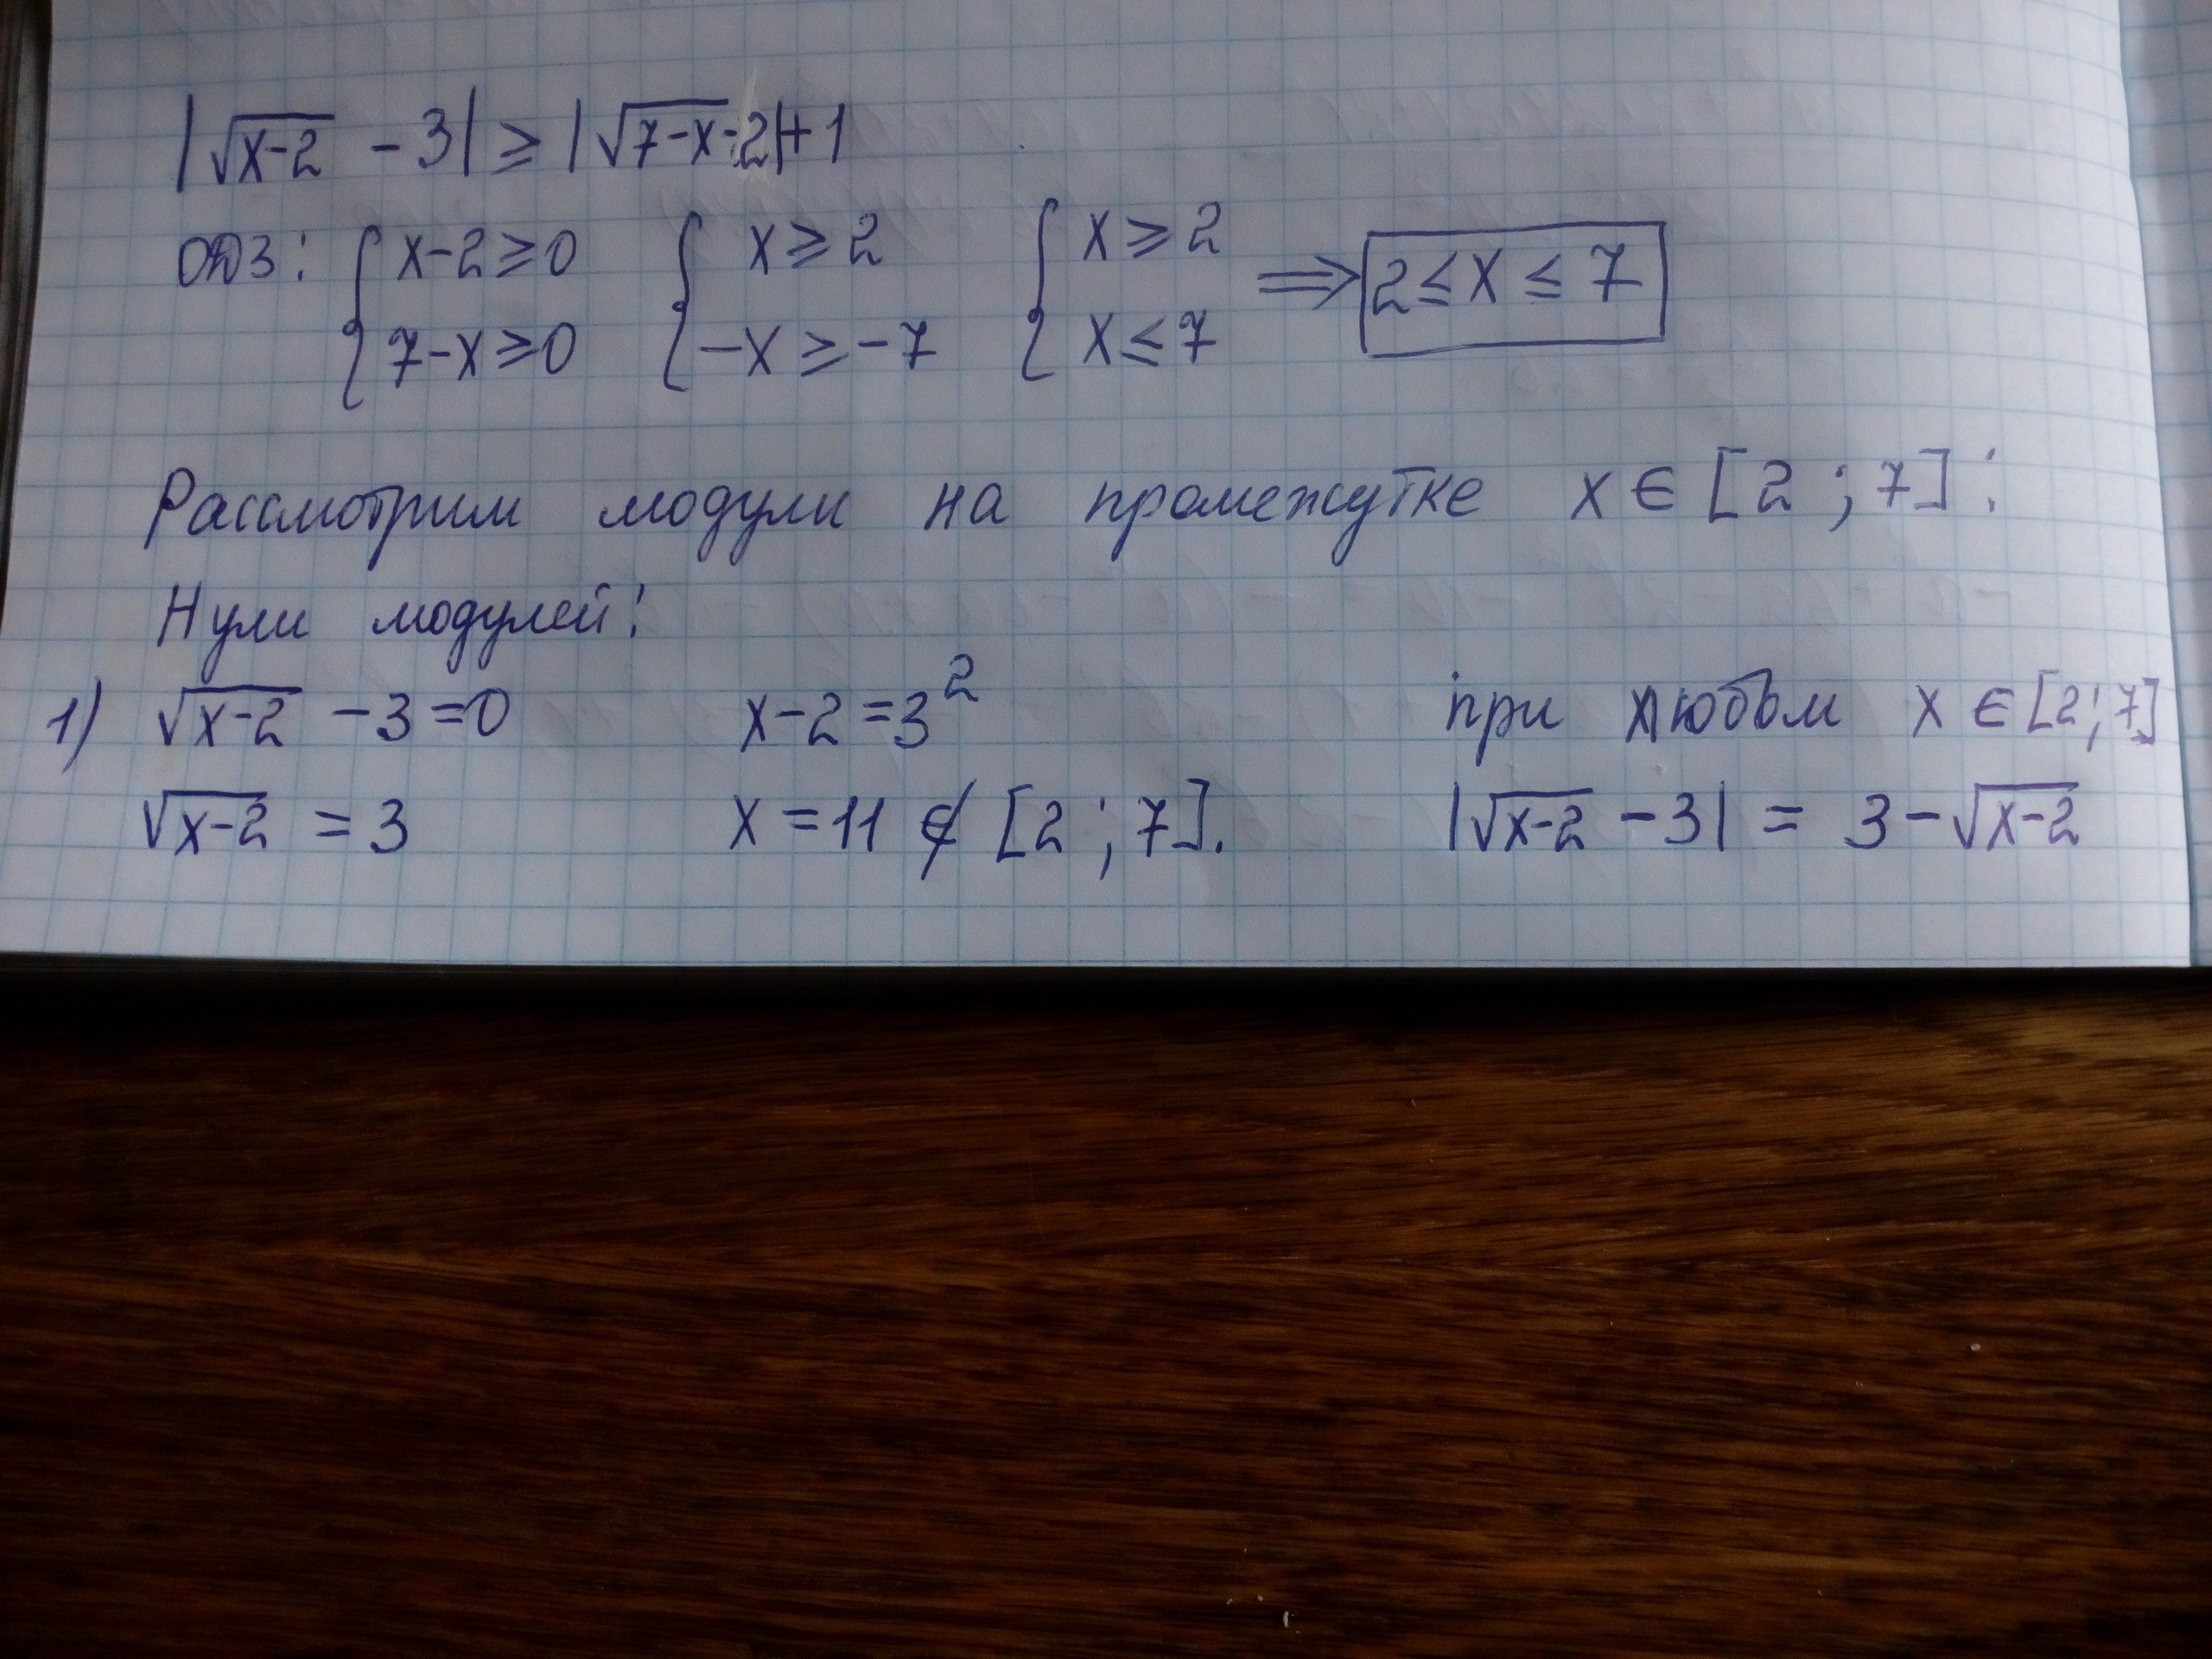 |√x-2 - 3| ⩾ |√7-x-2|+1
ОДЗ: { x-2⩾0 { x⩾2 { x⩾2 ⟹ 2≤x≤7
7-x⩾0 -x⩾-7 x≤7
Рассмотрим модули на промежутке x∈[2;7]:
Нули модулей:
1) √x-2 -3=0 x-2=3² при любом x∈[2;7]
√x-2 = 3 x=11 ∉ [2;7]. |√x-2 -3| = 3-√x-2